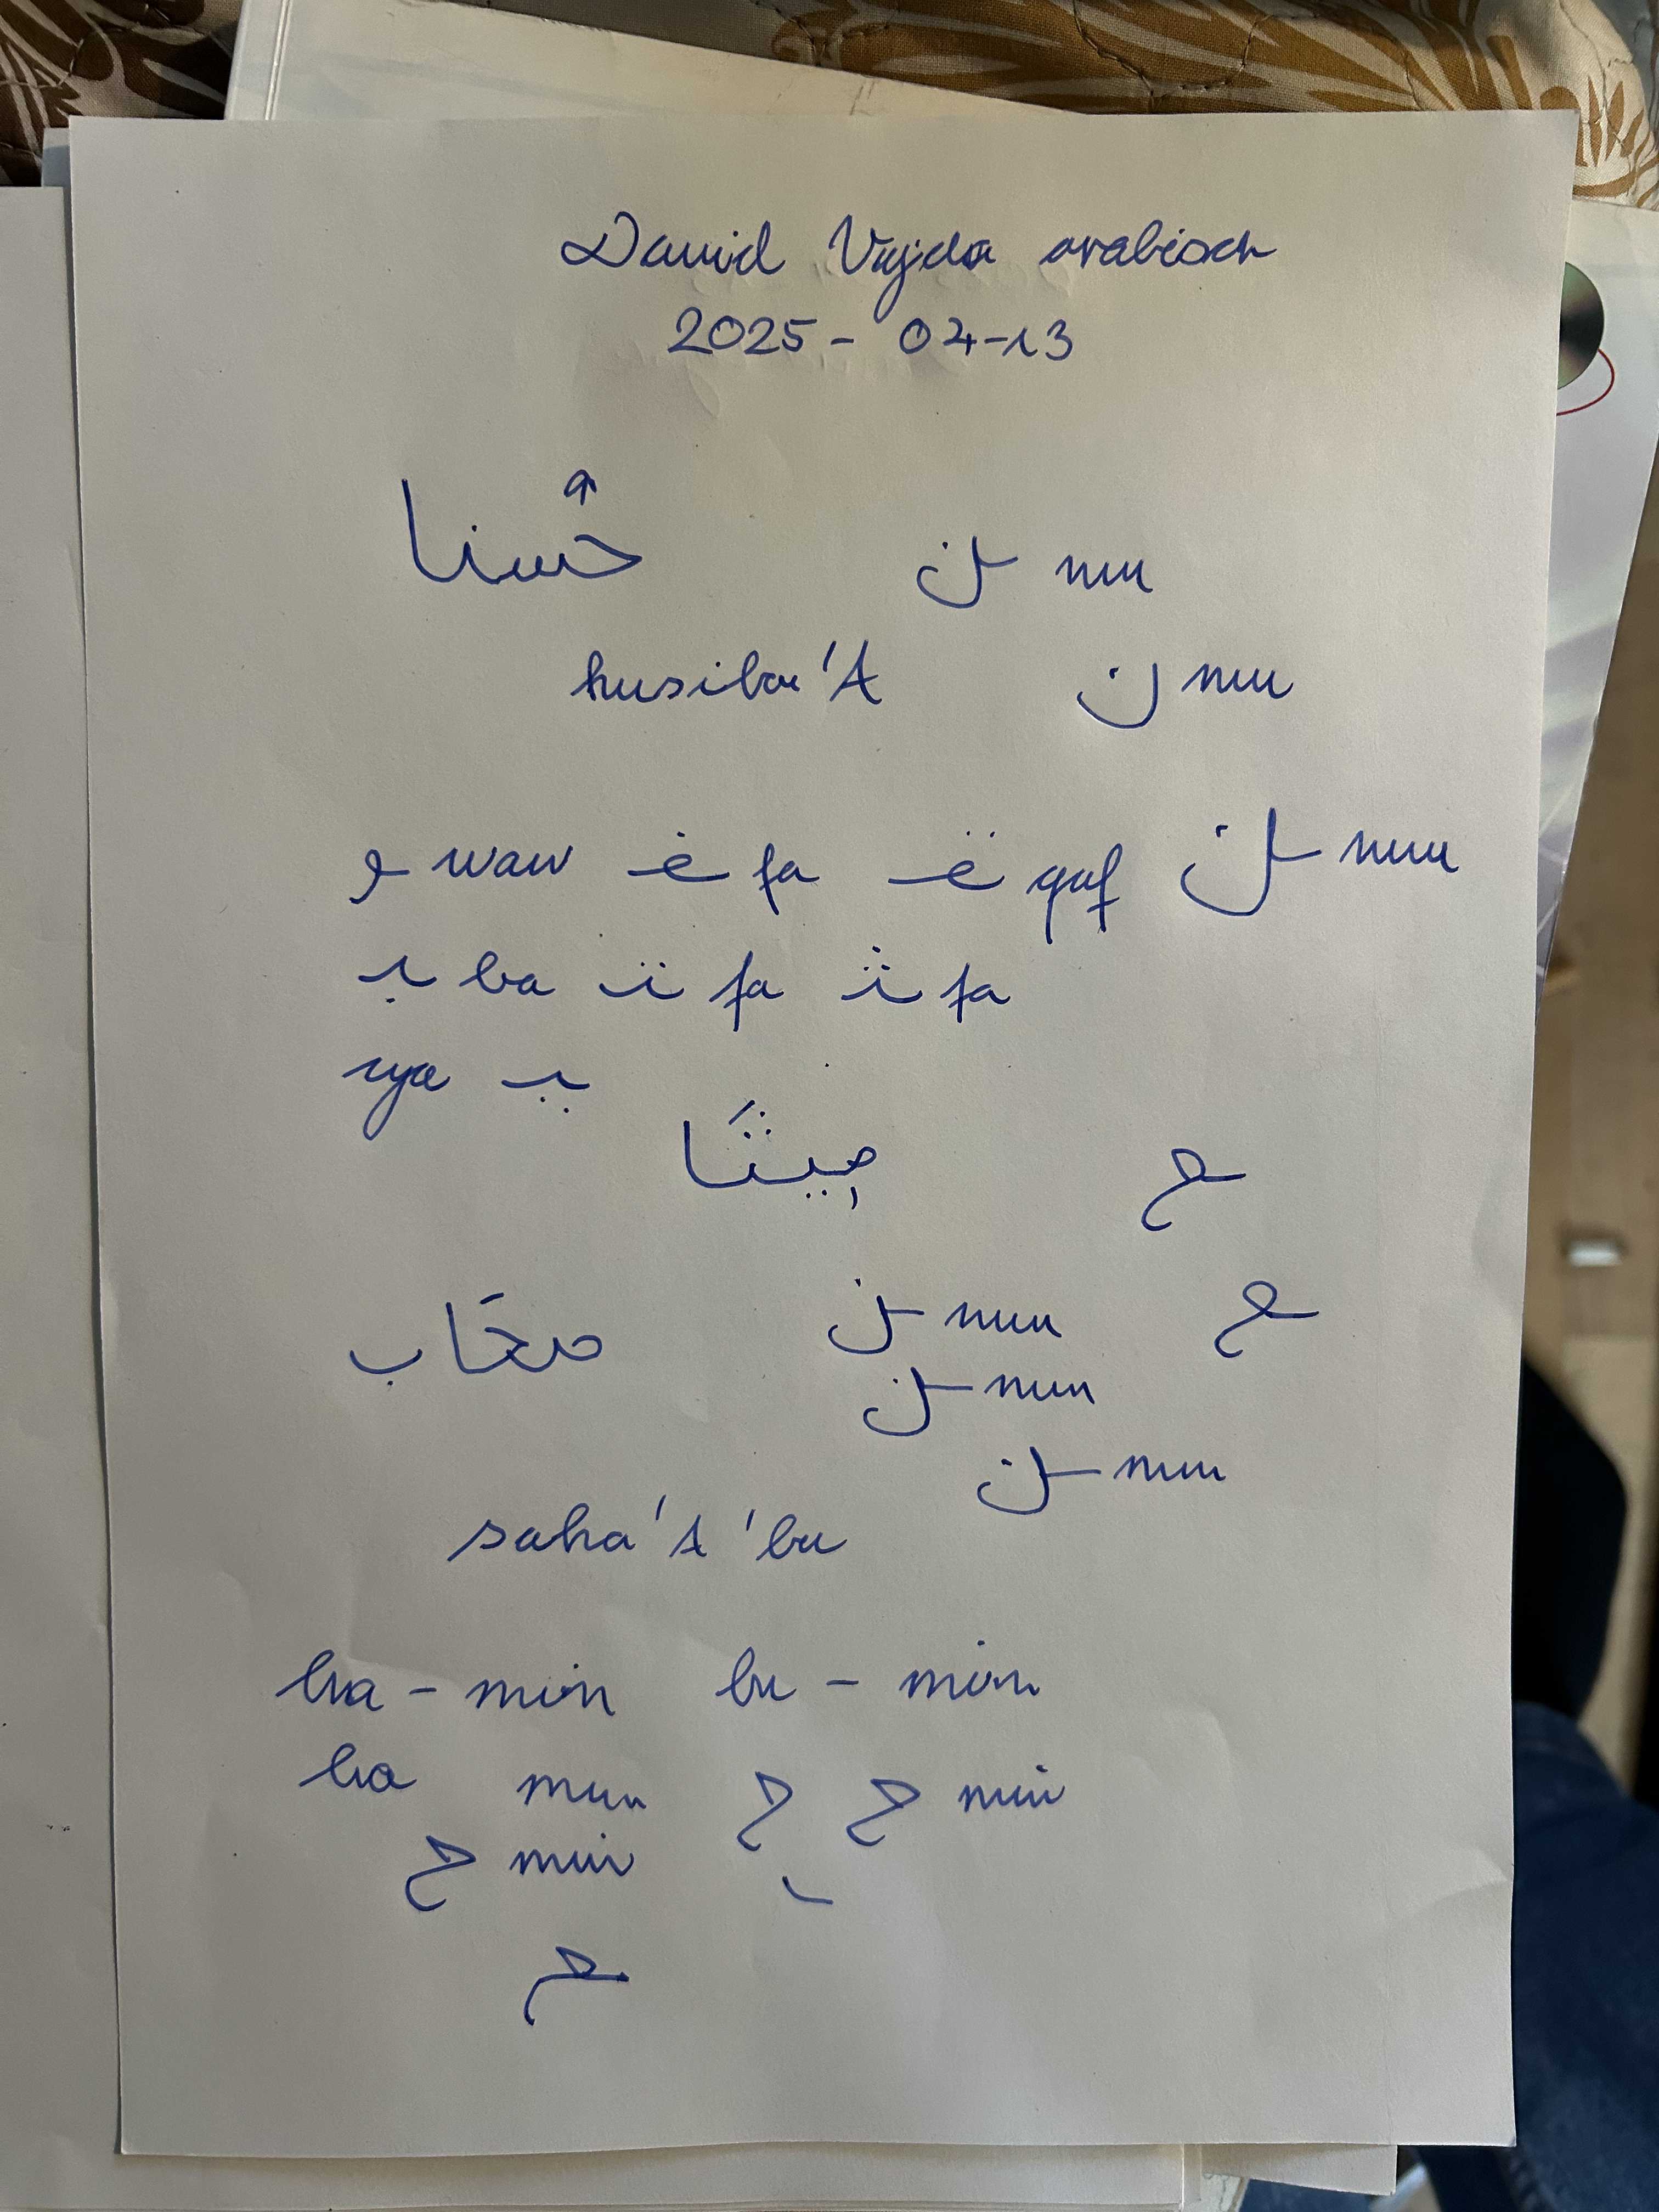 David Vajda arabisch
2025-04-13
حُسنا ـن nun
husiba'A ن nun
و waw ـفـ fa ـقـ qaf ـن nun
ـبـ ba ـتـ fa ـثـ fa
ya ـيـ
صِيثَا ـح
صحَاب ـن nun ـح
ـن nun
ـن nun
saha'A'bu
ha - min hu - min
ha mun ح ح min
ح min
ـح